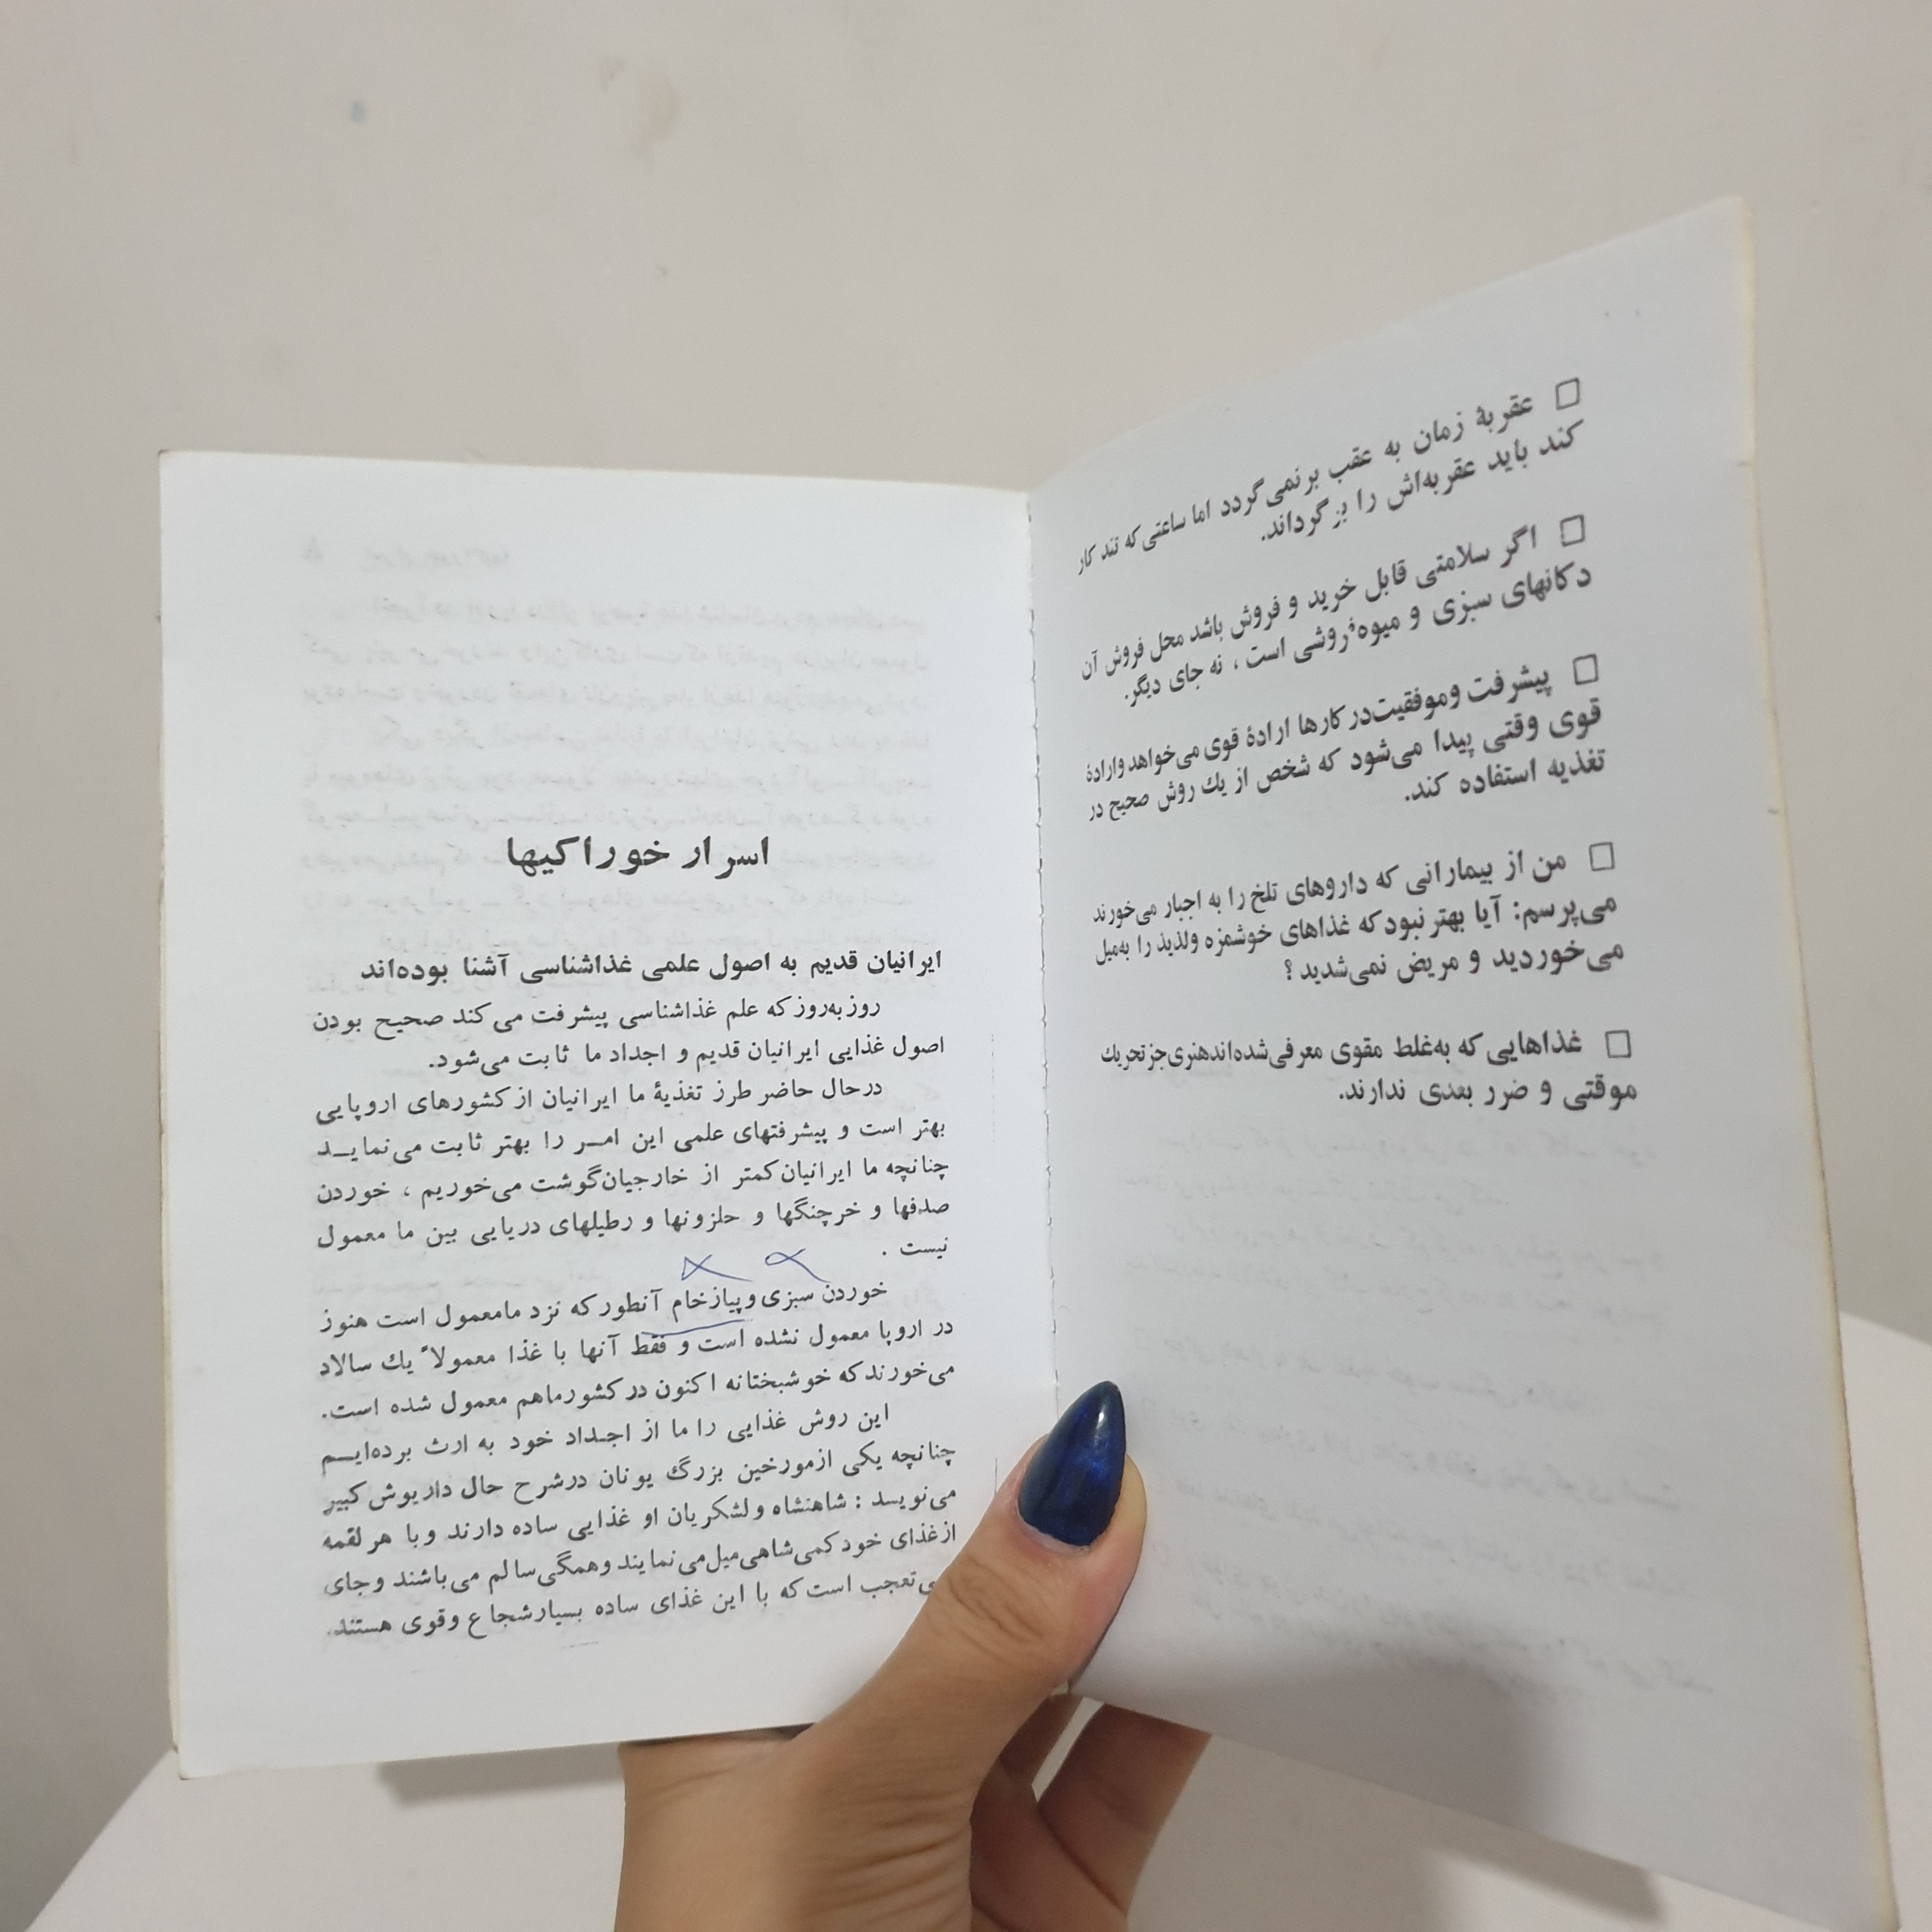 □ عقربهٔ زمان به عقب برنمی‌گردد اما ساعتی‌که تند کار
کند باید عقربه‌اش را برگرداند.
□ اگر سلامتی قابل خرید و فروش باشد محل فروش آن
دکانهای سبزی و میوه‌فروشی است ، نه جای دیگر.
□ پیشرفت وموفقیت‌در کارها ارادهٔ قوی می‌خواهد وارادهٔ
قوی وقتی پیدا می‌شود که شخص از یك روش صحیح در
تغذیه استفاده کند.
□ من از بیمارانی که داروهای تلخ را به اجبار می‌خورند
می‌پرسم: آیا بهتر نبود که غذاهای خوشمزه ولذیذ را به‌میل
می‌خوردید و مریض نمی‌شدید ؟
□ غذاهایی که به‌غلط مقوی معرفی‌شده‌اندهنری‌جزتحریك
موقتی و ضرر بعدی ندارند.
اسرار خوراکیها
ایرانیان قدیم به اصول علمی غذاشناسی آشنا بوده‌اند
روزبه‌روز که علم غذاشناسی پیشرفت می‌کند صحیح بودن
اصول غذایی ایرانیان قدیم و اجداد ما ثابت می‌شود.
درحال حاضر طرز تغذیهٔ ما ایرانیان از کشورهای اروپایی
بهتر است و پیشرفتهای علمی این امـر را بهتر ثابت می‌نمایـد
چنانچه ما ایرانیان کمتر از خارجیان‌گوشت می‌خوریم ، خوردن
صدفها و خرچنگها و حلزونها و رطیلهای دریایی بین ما معمول
نیست .
خوردن سبزی وپیازخام آنطور که نزد مامعمول است هنوز
در اروپا معمول نشده است و فقط آنها با غذا معمولاً یك سالاد
می‌خورند که خوشبختانه اکنون در کشورماهم معمول شده است.
این روش غذایی را ما از اجـداد خود به ارث برده‌ایـم
چنانچه یکی ازمورخین بزرگ یونان درشرح حال داریوش کبیر
می‌نویسد : شاهنشاه ولشکریان او غذایی ساده دارند وبا هر لقمه
ازغذای خود کمی‌شاهی‌میل‌می‌نمایند وهمگی‌سالم می‌باشند وجای
تعجب است که با این غذای ساده بسیارشجاع وقوی هستند.